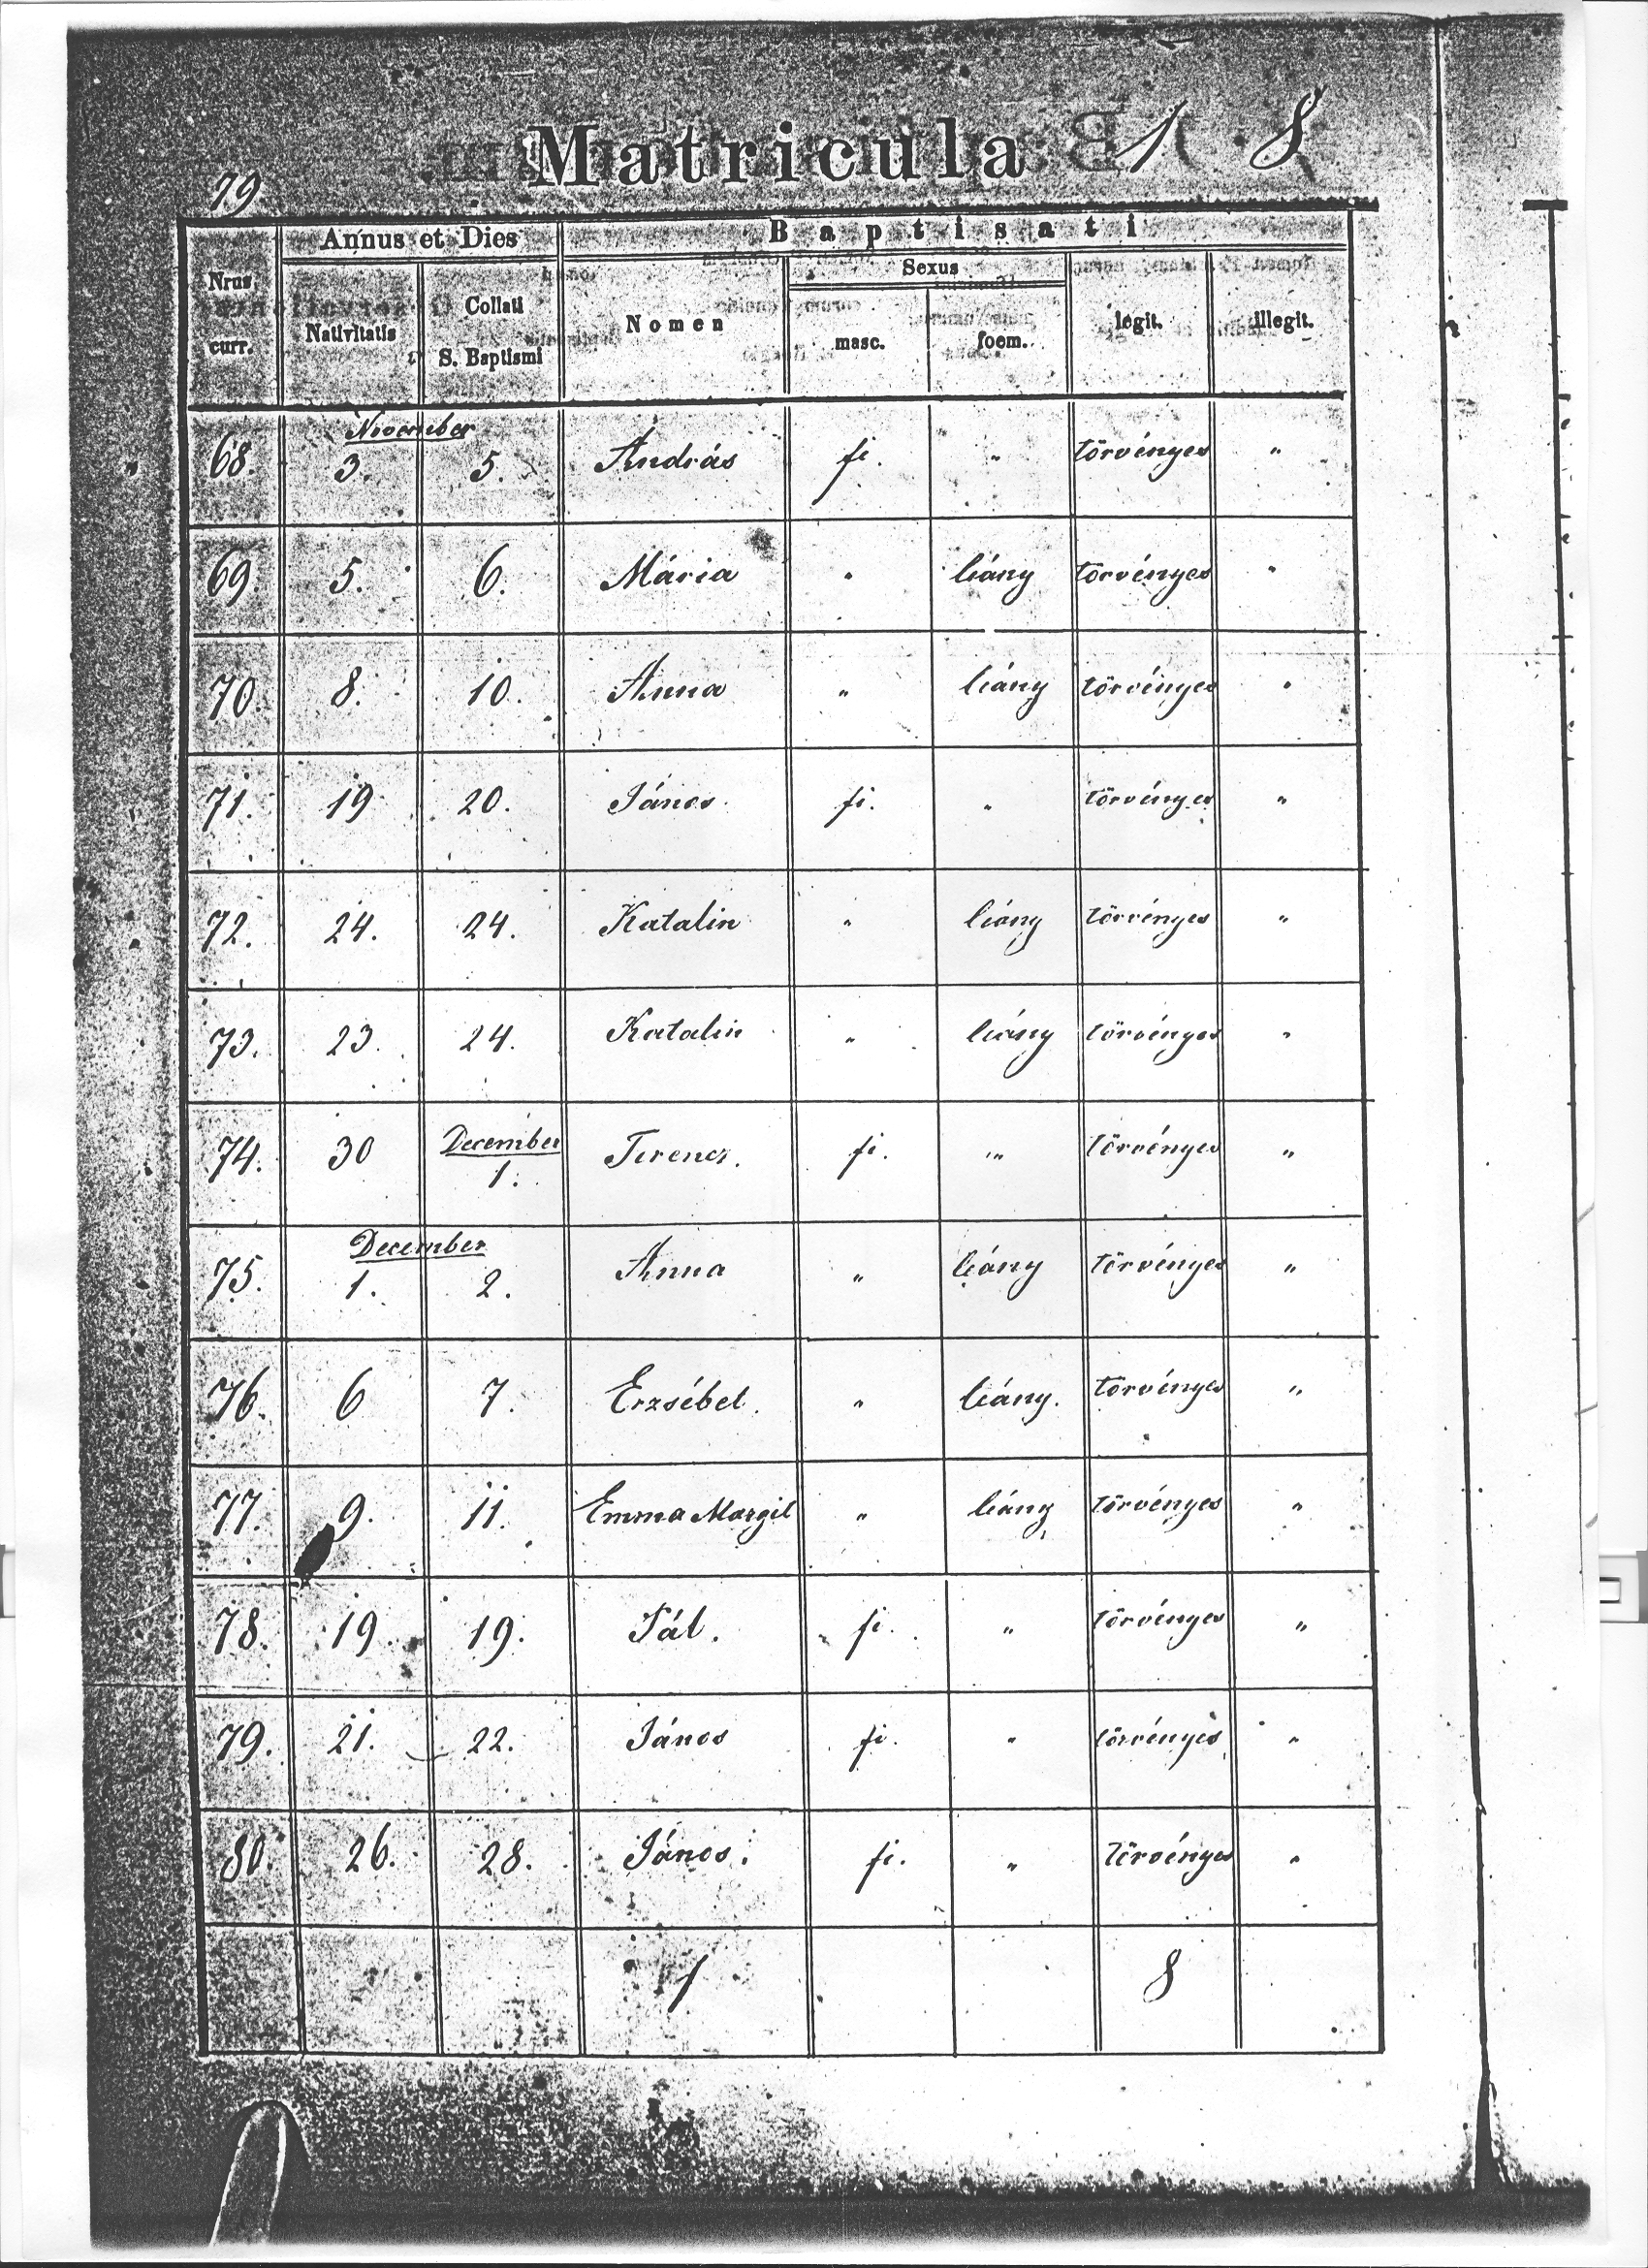 Matricula 1 8
79
Nrus curr. Annus et Dies Baptisati
Nativitatis Collati S. Baptismi Nomen Sexus legit. illegit.
masc. foem.
November
68. 3. 5. András fi. " törvényes "
69. 5. 6. Mária " leány törvényes "
70. 8. 10. Anna " leány törvényes "
71. 19 20. János fi. " törvényes "
72. 24. 24. Katalin " leány törvényes "
73. 23. 24. Katalin " leány törvényes "
December
74. 30 1. Ferencz. fi. " törvényes "
December
75. 1. 2. Anna " leány törvényes "
76. 6 7. Erzsébet. " leány. törvényes "
77. 9. 11. Emma Margit " leány törvényes "
78. 19. 19. Pál. fi. " törvényes "
79. 21. 22. János fi. " törvényes "
80. 26. 28. János. fi. " törvényes "
1 8